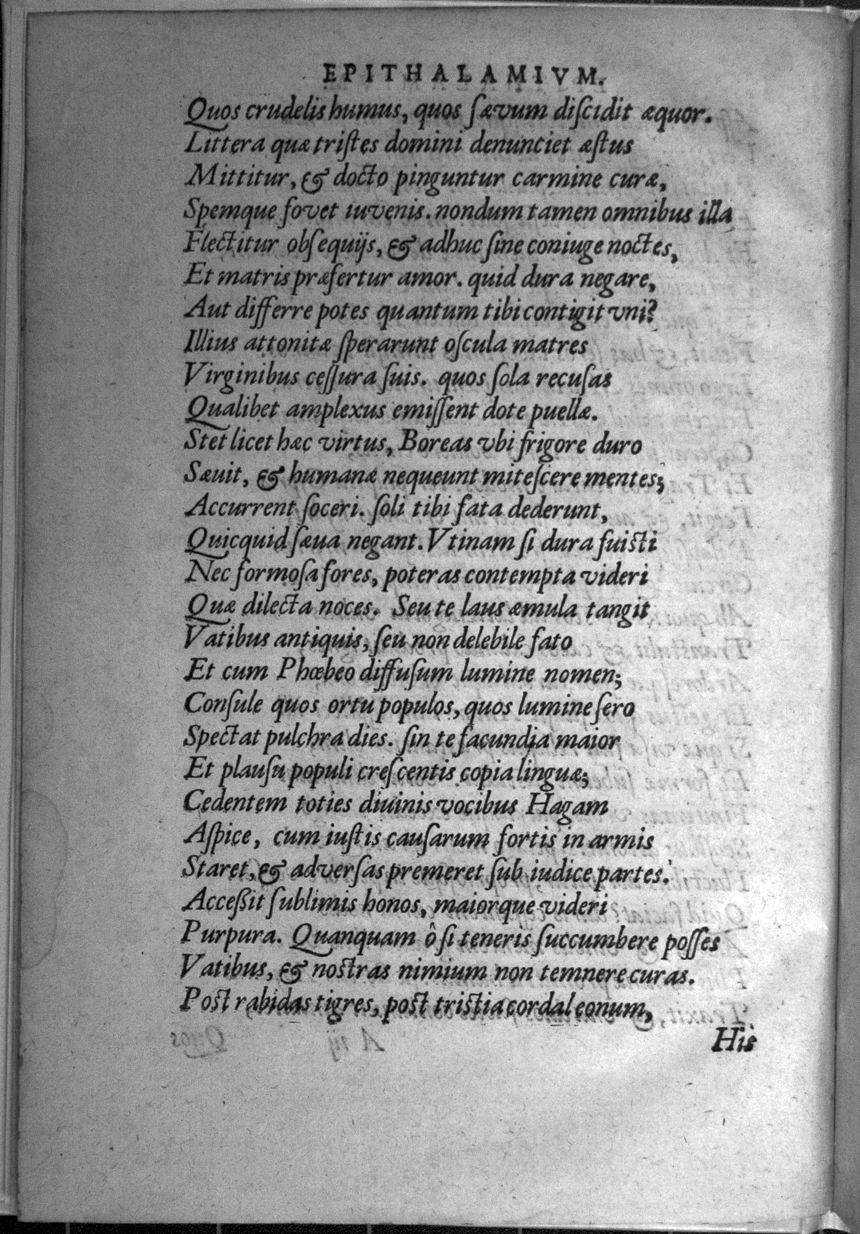 EPITHALAMIVM.
Quos crudelis humus, quos sævum discidit æquor.
Littera quæ tristes domini denunciet æstus
Mittitur, & docto pinguntur carmine curæ,
Spemque fovet iuvenis. nondum tamen omnibus illa
Flectitur obsequijs, & adhuc sine coniuge noctes,
Et matris præfertur amor. quid dura negare,
Aut differre potes quantum tibi contigit vni?
Illius attonitæ sperarunt oscula matres
Virginibus cessura suis. quos sola recusas
Qualibet amplexus emissent dote puellæ.
Stet licet hæc virtus, Boreas vbi frigore duro
Sæuit, & humanæ nequeunt mitescere mentes;
Accurrent soceri. soli tibi fata dederunt,
Quicquid sæua negant. Vtinam si dura fuisti
Nec formosa fores, poteras contempta videri
Quæ dilecta noces. Seu te laus æmula tangit
Vatibus antiquis, seu non delebile fato
Et cum Phœbeo diffusum lumine nomen;
Consule quos ortu populos, quos lumine sero
Spectat pulchra dies. sin te facundia maior
Et plausu populi crescentis copia linguæ;
Cedentem toties diuinis vocibus Hagam
Aspice, cum iustis causarum fortis in armis
Staret, & adversas premeret sub iudice partes.
Accessit sublimis honos, maiorque videri
Purpura. Quanquam ô si teneris succumbere posses
Vatibus, & nostras nimium non temnere curas.
Post rabidas tigres, post tristia corda leonum,
His